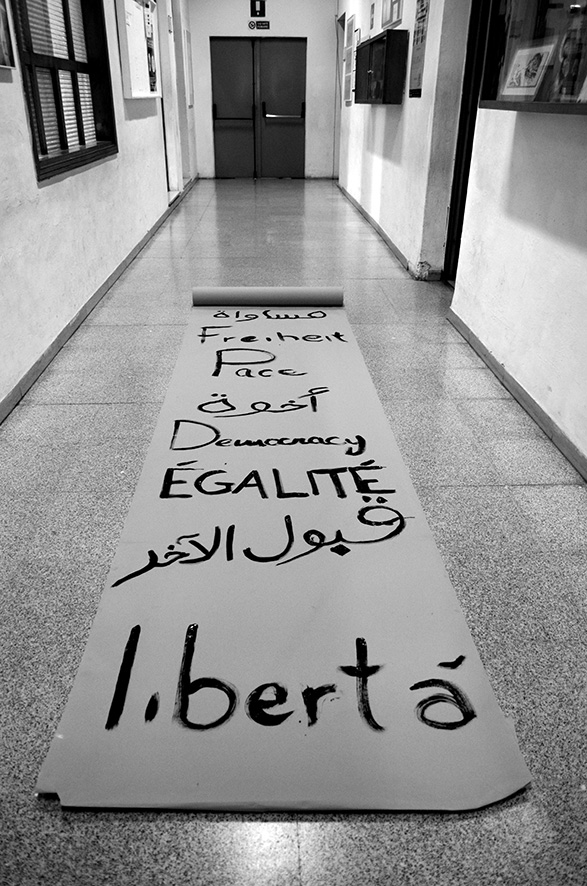 مساواة
Freiheit
Pace
أخوة
Democracy
ÉGALITÉ
قبول الآخر
libertá